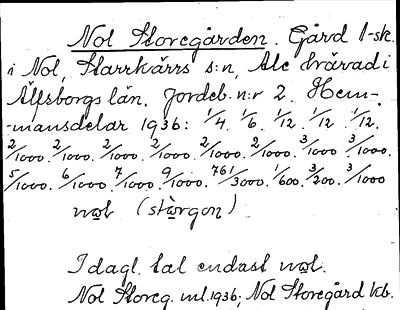 Nol Storegården. Gård 1-sk.
i Nol, Starrkärrs s:n, Ale härad i
Älfsborgs län. Jordeb. n:r 2. Hem-
-mansdelar 1936: 1/4. 1/6. 1/12. 1/12. 1/12.
2/1000. 2/1000. 2/1000. 2/1000. 2/1000. 2/1000. 3/1000. 3/1000.
5/1000. 6/1000. 7/1000. 9/1000. 761/3000. 1/600. 3/200. 3/1000
nol (stòrgon)
I dagl. tal endast nol.
Nol Storeg. ml. 1936, Nol Storegård kb.